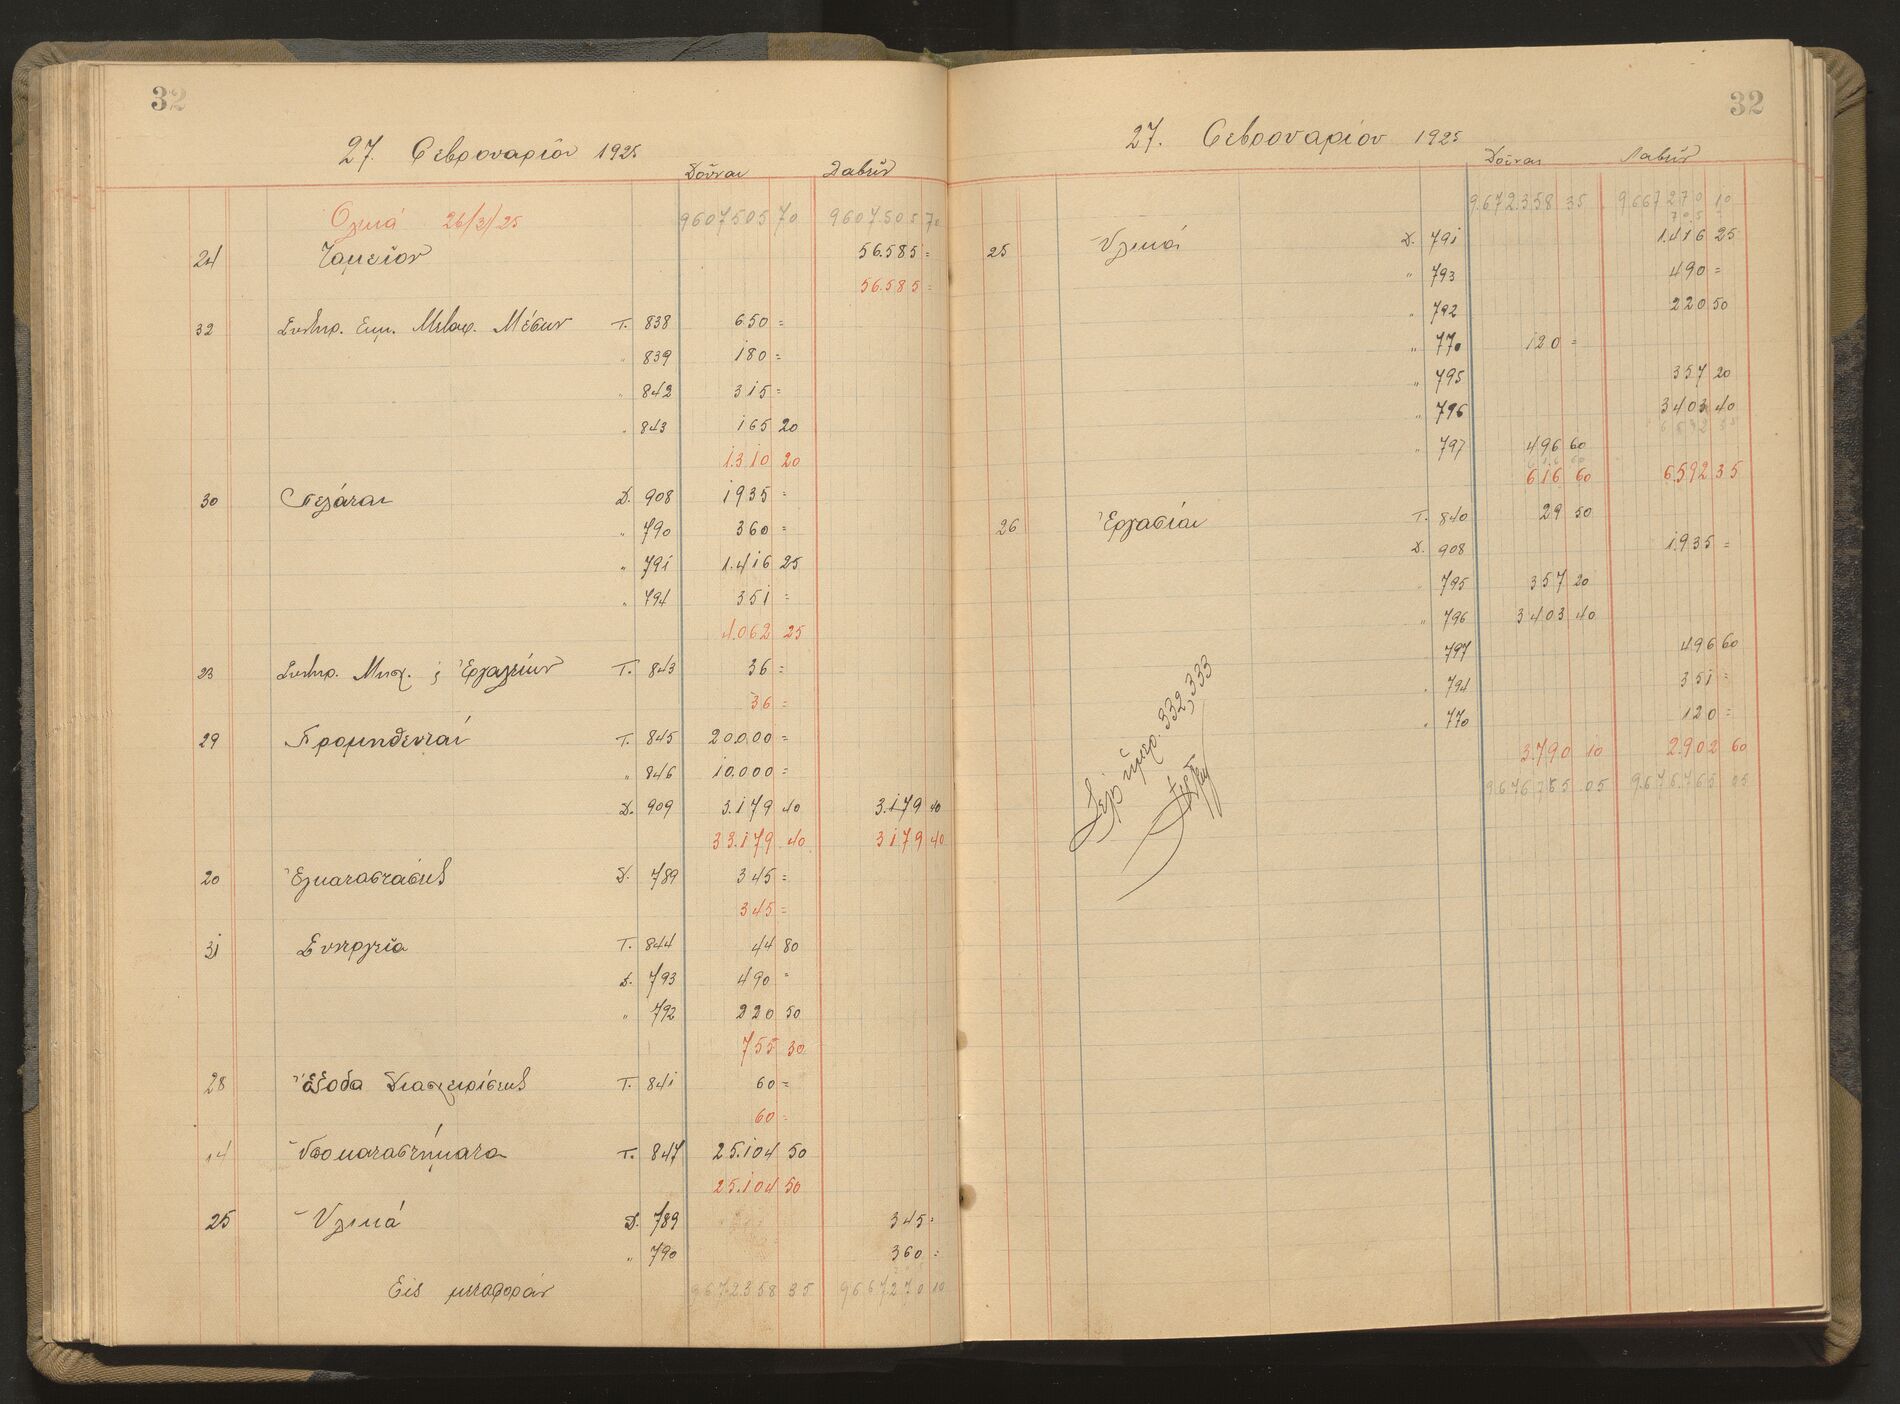 32
27. Φεβρουαρίου 1925
Δοῦναι Λαβεῖν
Ολικά 26/2/25 9607505 70 9607505 70
24 Ταμεῖον 56.585 =
56.585 =
32 Συντηρ. Εκμ. Μεταφ. Μέσων Τ. 838 650 =
" 839 180 =
" 842 315 =
" 843 165 20
1.310 20
30 Πελάται Δ. 908 1935 =
" 790 360 =
" 791 1.416 25
" 794 351 =
4.062 25
23 Συντηρ. Μηχ. ϛ Ἐργαλείων Τ. 843 36 =
36 =
29 Προμηθευταί Τ. 845 20.000 =
" 846 10.000 =
Δ. 909 3.179 40 3.179 40
33.179 40 3179 40
20 Ἐγκαταστάσεις Δ. 789 345 =
345 =
31 Συνεργεῖα Τ. 844 44 80
Δ. 793 490 =
" 792 220 50
755 30
28 Ἔξοδα Διαχειρίσεως Τ. 841 60 =
60 =
14 Υποκαταστήματα Τ. 847 25.104 50
25.104 50
25 Υλικά Δ. 789 345 =
" 790 360 =
Εἰς μεταφοράν 9672358 35 9667270 10
32
27. Φεβρουαρίου 1925
Δοῦναι Λαβεῖν
9.672.358 35 9.667270 10
705
25 Υλικά Δ. 791 1.416 25
" 793 490 =
" 792 220 50
" 770 120 =
" 795 357 20
" 796 3403 40
" 797 496 60
616 60 6.592 35
26 Ἐργασίαι Τ. 840 29 50
Δ. 908 1.935 =
" 795 357 20
" 796 3403 40
797 496 60
" 794 351 =
" 770 120 =
3.790 10 2.902 60
9676765 05 9.676.765 05
ἡμερ. 332, 333